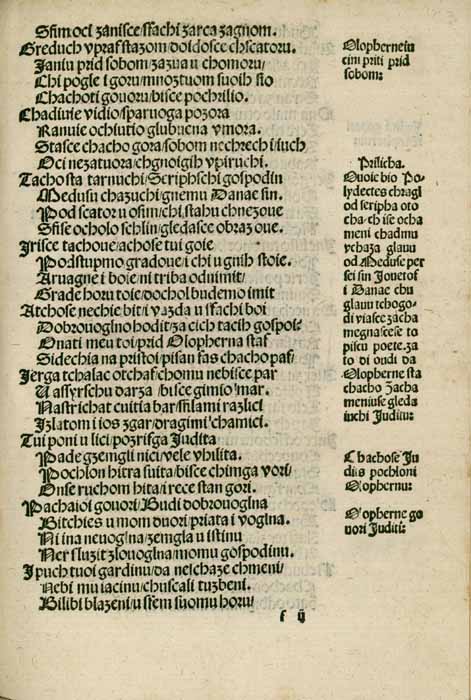 Sfim oci zanisce/sfachi zarca zagnom.
Greduch vpraf stazom/doi dosce chscatoru.
Ianiu prid sobom/zazua u chomoru/
Chi pogle i goru/mnoztuom suoih sto
Chachoti gouoru/bisce pochrilio.
Chada uidio/sparuoga pozora
Ranuie ochiutio glubuena vmora.
Stasce chacho gora/sobom nechrech i iuch
Oci nezatuora/chgnoigih vpiruchi.
Tachosta tarnuchi/Seriphschi gospodin
Medusu chazuchi/gnemu Danae sin.
Pod scator u ofim/chi stahu chnezoue
Sfise ocholo schlin/gledasce obraz oue.
Irisce tachoue/achose tui goie
Podstupmo gradoue/i chi u gnih stoie.
Aruagne i boie/ni triba oduimit/
Grade horu toie/dochol budemo imit
Atchose nechie bit/i vazda u sfachi boi
Dobrouoglno hodit/za cich tacih gospoi.
Onati meu toi/prid Olopherna staf
Sidechia na pristoi/pisan fas chacho paf/
Ierga tchalac otchaf/chomu nebisce par
U assyrschu darza/bisce gimio mar.
Nastrichat cuitia bar/silami razlici
Izlatom i ios zgar/dragimi chamici.
Tui poni u lici/pozrisga Judita
Pade gzemgli nici/vele vhilita.
Pochlon hitra suita/bisce chimga vori/
Onse ruchom hita/i rece stan gori.
Pachaioi gouori/Budi dobrouoglna
Bitchies u mom duori/priata i voglna.
Ni ina neuoglna/zemgla u istinu
Ner sluzit zlouoglna/momu gospodinu.
Ipuch tuoi gardinu/da neschaze chmeni/
Nebi mu iacinu/chuscali tuzbeni.
Bilibi blazeni/u sfem suomu horu/
f ij
Olopherne iu
cini priti prid
sobom:
Prilicha.
Ouoie bio Po/
lydectes chragl
od seripha oto
cha/ch ise ocha
meni chadmu
vchaza glauu
od Meduse per
sei sin Joue tof
i Danae chu
glauu tchogo/
di viasce zacha
megnascese to
piscu poete.za
to di oudi da
Olopherne sta
chacho Zacha
meniuse gleda
iuchi Juditu:
Chachose Ju
dijs pochloni
Olophernu:
Olopherne go
uori Juditi: